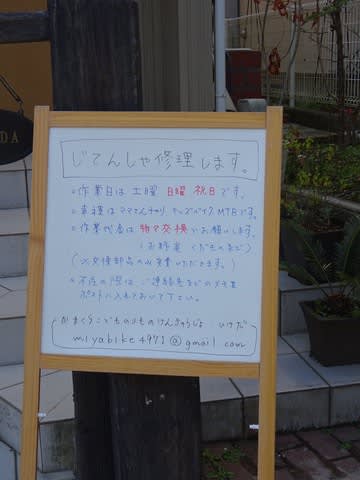 DA
じてんしゃ修理します。
。作業日は 土曜 日曜 祝日 です。
。車種はママさんチャリ キッズバイク MTBです。
。作業代金は 物々交換 でお願いします。
(お野菜 くだものなど)
(※交換部品のみ実費いただきます。)
。不在の際は ご連絡先などのメモを
ポストに入れておいて下さい。
かまくらこどものもののけんきゅうじょ いけだ
miyabike4971@gmail.com